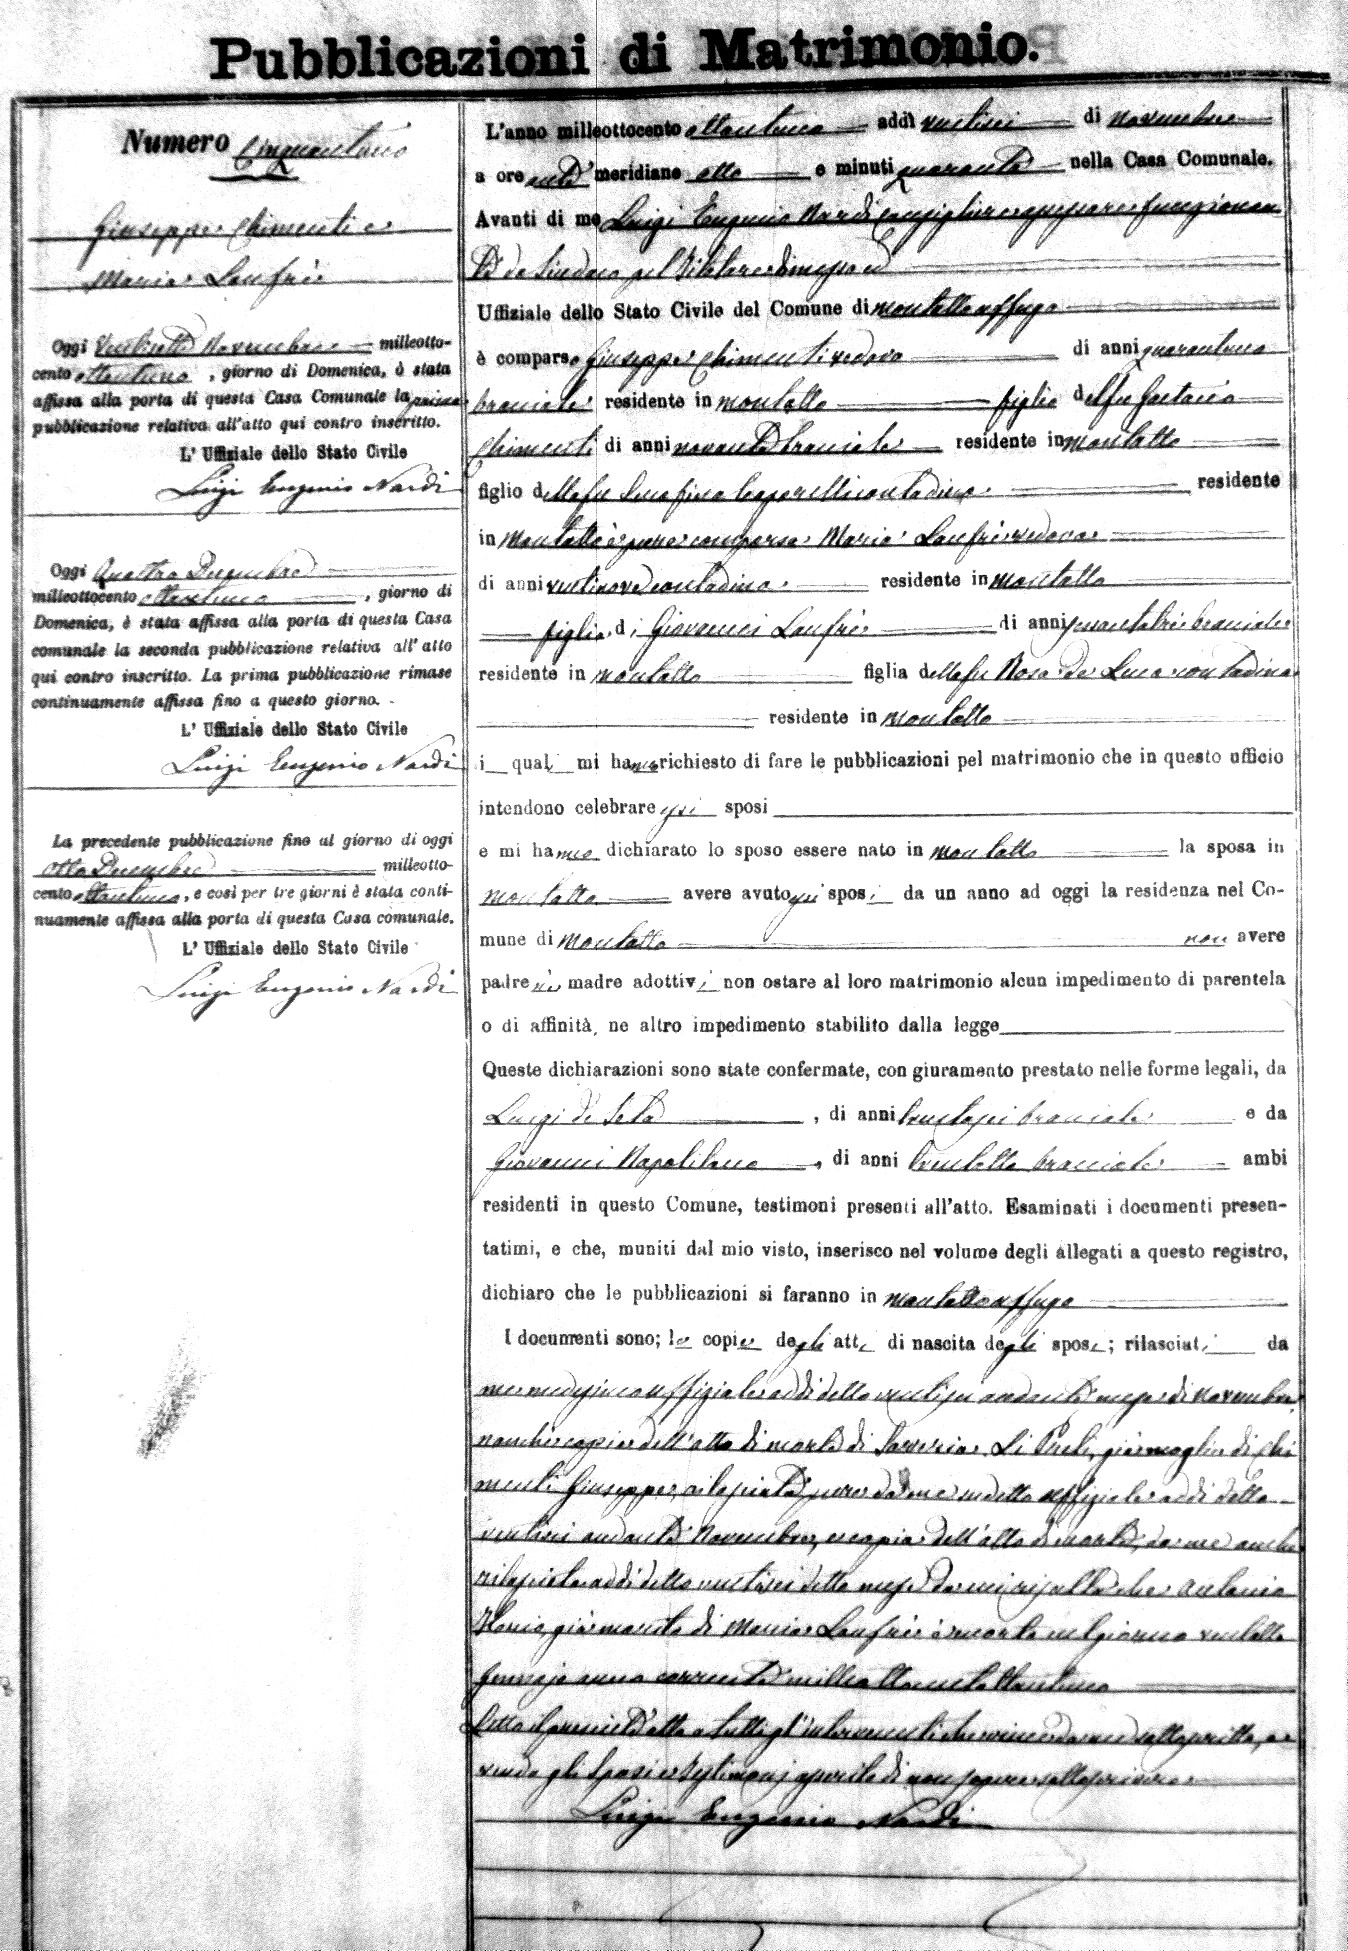 Pubblicazioni di Matrimonio.
Numero Cinquantuno
Giuseppe Chimenti e
Maria Lanfrè
Oggi Ventisette Novembre milleotto-
cento ottantuno, giorno di Domenica, è stata
affissa alla porta di questa Casa Comunale la prima
pubblicazione relativa all'atto qui contro inscritto.
L' Uffiziale dello Stato Civile
Luigi Eugenio Nardi
Oggi Quattro Decembre
milleottocento ottantuno, giorno di
Domenica, è stata affissa alla porta di questa Casa
comunale la seconda pubblicazione relativa all' atto
qui contro inscritto. La prima pubblicazione rimase
continuamente affissa fino a questo giorno.
L' Uffiziale dello Stato Civile
Luigi Eugenio Nardi
La precedente pubblicazione fino al giorno di oggi
Otto Decembre milleotto-
cento ottantuno, e così per tre giorni è stata conti-
nuamente affissa alla porta di questa Casa comunale.
L' Uffiziale dello Stato Civile
Luigi Eugenio Nardi
L'anno milleottocento ottantuno addì ventisei di novembre
a ore anti meridiane otto e minuti quaranta nella Casa Comunale.
Avanti di me Luigi Eugenio Nardi Consigliere assessore funzionan
te da Sindaco pel titolare dimesso ed
Uffiziale dello Stato Civile del Comune di Montalto uffugo
è comparso Giuseppe Chimenti vedovo di anni quarantuno
bracciale residente in Montalto figlio del fu Gaetano
Chimenti di anni novanta bracciale residente in Montalto
figlio della fu Serafina contadina residente
in Montalto è pure comparsa Maria Lanfrè vedova
di anni ventinove contadina residente in Montalto
figlia di Giovanni Lanfrè di anni bracciale
residente in Montalto figlia della fu Rosa de Luca contadina
residente in Montalto
i quali mi hanno richiesto di fare le pubblicazioni pel matrimonio che in questo ufficio
intendono celebrare essi sposi
e mi hanno dichiarato lo sposo essere nato in Montalto la sposa in
Montalto avere avuto essi sposi da un anno ad oggi la residenza nel Co-
mune di Montalto non avere
padre nè madre adottivi non ostare al loro matrimonio alcun impedimento di parentela
o di affinità, ne altro impedimento stabilito dalla legge
Queste dichiarazioni sono state confermate, con giuramento prestato nelle forme legali, da
Luigi de Seta, di anni trentasei bracciale e da
Giovanni Napolitano, di anni trentotto bracciale ambi
residenti in questo Comune, testimoni presenti all'atto. Esaminati i documenti presen-
tatimi, e che, muniti dal mio visto, inserisco nel volume degli allegati a questo registro,
dichiaro che le pubblicazioni si faranno in Montalto uffugo
I documenti sono; le copie degli atti di nascita degli sposi; rilasciati da
me medesimo uffiziale addì detto ventisei andante mese di Novembre,
nonchè copia dell'atto di morte di Saveria Li Preti, già moglie di Chi
menti Giuseppe, rilasciata pure da me sudetto uffiziale addì detto
ventisei andante Novembre, e copia dell'atto di morte, da me anche
rilasciata addì detto ventisei detto mese da cui risulta che Antonio
Iorio già marito di Maria Lanfrè è morto nel giorno ventotto
Gennajo anno corrente milleottocentottantuno
Letto il presente atto a tutti gl'intervenuti che viene da me sottoscritto, a
vendo gli Sposi e testimonj asserito di non sapere sottoscrivere
Luigi Eugenio Nardi